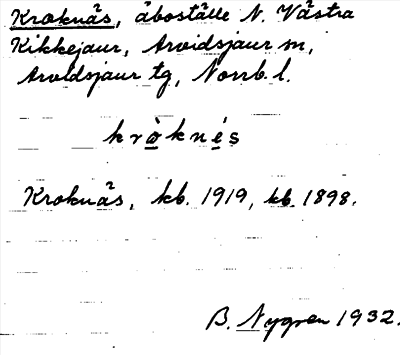 Kroknäs, åboställe N. Västra
Kikkejaur, Arvidsjaur sn,
Arvidsjaur tg, Norrb. l.
kròknés
Kroknäs, kb. 1919, kb. 1898.
B. Nygren 1932.